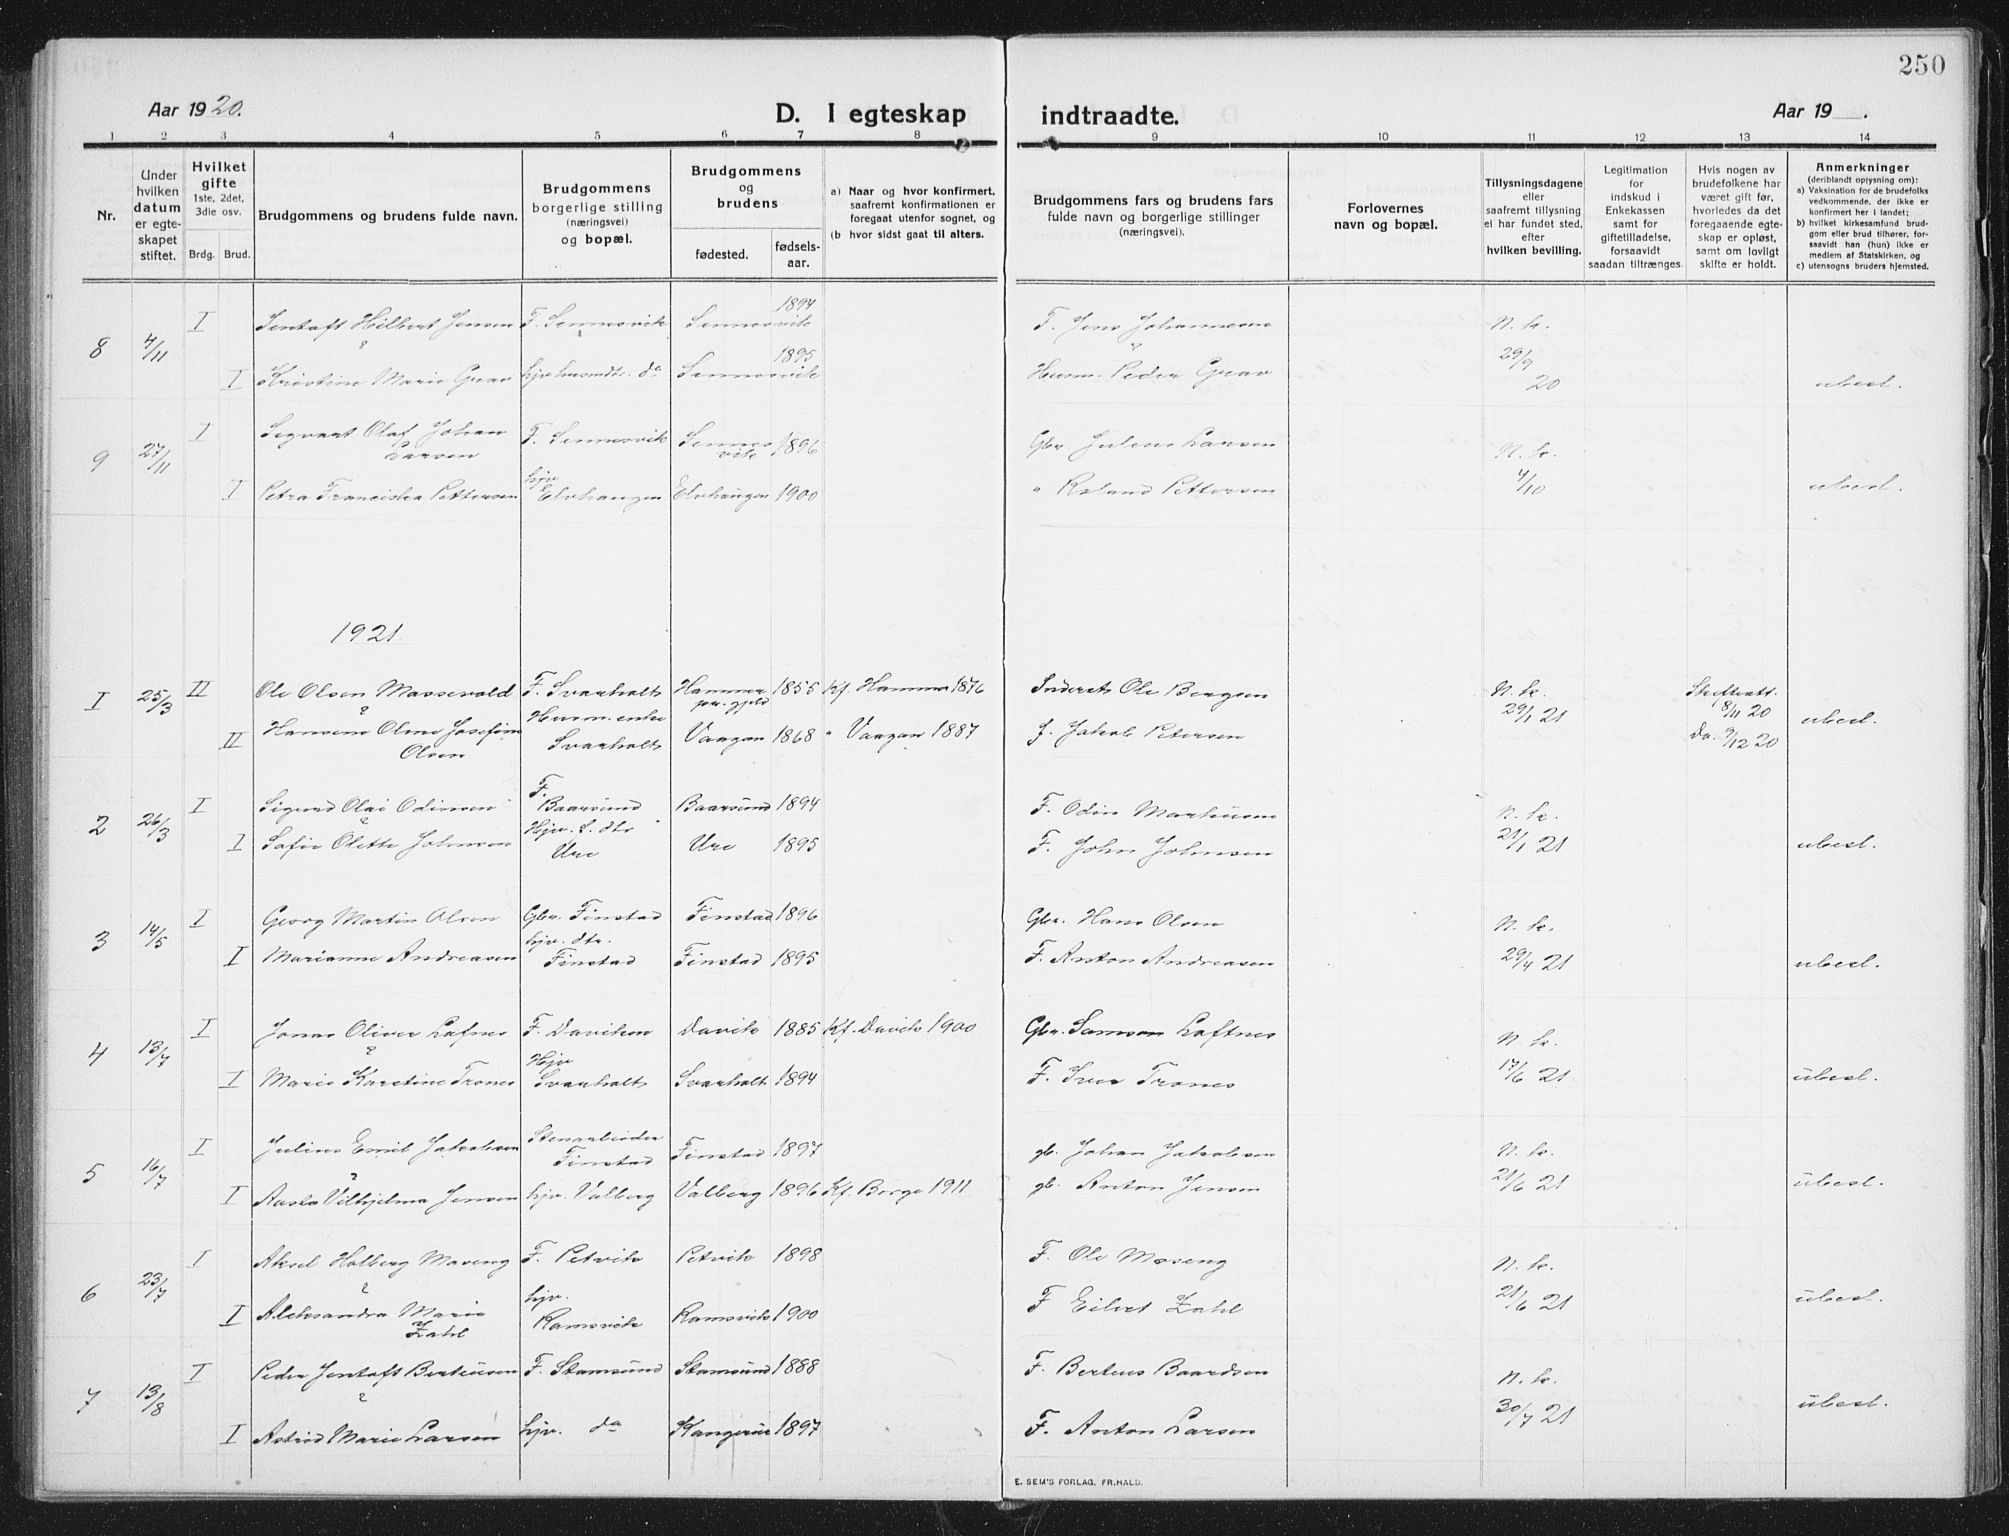 250
Aar 1920.
D. I egteskap indtraadte.
Aar 19 .
1 2 3 4 5 6 7 8 9 10 11 12 13 14
Nr.
Under hvilken datum er egteskapet stiftet.
Hvilket gifte 1ste, 2det, 3die osv.
Brdg. Brud.
Brudgommens og brudens fulde navn.
Brudgommens borgerlige stilling (næringsvei) og bopæl.
Brudgommens og brudens
fødested. fødsels-aar.
a) Naar og hvor konfirmert, saafremt konfirmationen er foregaat utenfor sognet, og
(b hvor sidst gaat til alters.
Brudgommens fars og brudens fars fulde navn og borgerlige stillinger (næringsvei).
Forlovernes navn og bopæl.
Tillysningsdagene eller saafremt tillysning ei har fundet sted, efter hvilken bevilling.
Legitimation for indskud i Enkekassen samt for giftetilladelse, forsaavidt saadan tiltrænges.
Hvis nogen av brudefolkene har været gift før, hvorledes da det foregaaende egteskap er opløst, samt om lovligt skifte er holdt.
Anmerkninger (deriblandt oplysning om):
a) Vaksination for de brudefolks vedkommende, der ikke er konfirmert her i landet;
b) hvilket kirkesamfund brudgom eller brud tilhører, forsaavidt han (hun) ikke er medlem af Statskirken, og
c) utensogns bruders hjemsted.
8 4/11 I Jentoft Hilbert Jensen F. Sennesvik Sennesvik 1894 F. Jens Johannesen N. k. 29/9 20
I Kristine Marie Grav hjv husmdtr. do Sennesvik 1895 Husm. Peder Grav ubesl.
9 27/11 I Sigvart Olaf Johan Larsen F. Sennesvik Sennesvik 1896 Gbr. Julius Larsen N. k. 4/10
I Petra Franciska Pettersen hjv Elvhaugen Elvhaugen 1900 " Roland Pettersen ubesl.
1921
1 25/3 II Ole Olsen Massevold F. Svarholt Hammer pr. gjeld 1855 Kf. Hammer 1876 Inderst Ole Bergsen N. k. 29/1 21 Skifteatt. 8/11 20
II Hansine Oline Josefine Olsen Husm. enke Svarholt Vaagan 1868 " Vaagan 1887 f. Jakob Petersen do. 9/12 20 ubesl.
2 26/3 I Sigurd Olai Odinsen F. Baarsund Baarsund 1894 F. Odin Markussen N. k. 21/1 21
I Sofie Olette Johnsen Hjv. f. dtr Ure Ure 1895 F. John Johnsen ubesl.
3 14/5 I Georg Martin Olsen Gbr. Finstad Finstad 1896 Gbr. Hans Olsen N. k. 29/4 21
I Marianne Andreasen hjv. dtr. Finstad Finstad 1895 F. Anton Andreasen ubesl.
4 13/7 I Jonas Oliver Lofnes F. Daviken Davik 1885 Kf. Davik 1900 Gbr. Samson Loftnes N. k. 17/6 21
I Marie Karstine Trones Hjv Svarholt Svarholt 1894 F. Iver Trones ubesl.
5 16/7 I Julius Emil Jakobsen Stenarbeider Finstad Finstad 1897 gb. Johan Jakobsen N. k. 21/6 21
I Aasta Vilhjelma Jensen hjv. Valberg Valberg 1896 Kf. Borge 1911 gb. Anton Jensen ubesl.
6 23/7 I Aksel Holberg Maseng F. Petvik Petvik 1898 F. Ole Maseng N. k. 21/6 21
I Aleksandra Marie Zahl hjv. Ramsvik Ramsvik 1900 F Eilert Zahl ubesl.
7 13/8 I Peder Jentoft Berteusen F. Stamsund Stamsund 1888 F. Berteus Baardsen N. k. 30/7 21
I Astrid Marie Larsen hjv. do Kangerur 1897 F. Anton Larsen ubesl.
E. SEM'S FORLAG, FR.HALD.